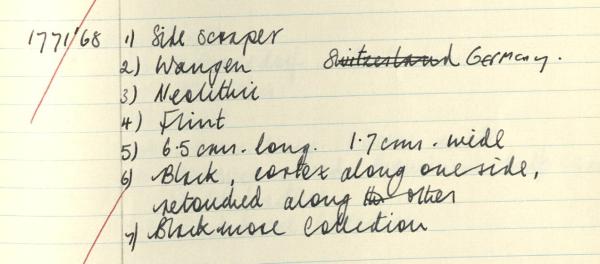 1771/'68 1) Side scraper
2) Wangen Switzerland Germany.
3) Neolithic
4) Flint
5) 6.5 cms. long. 1.7 cms. wide
6) Black, cortex along one side,
retouched along the other
7) Blackmore Collection